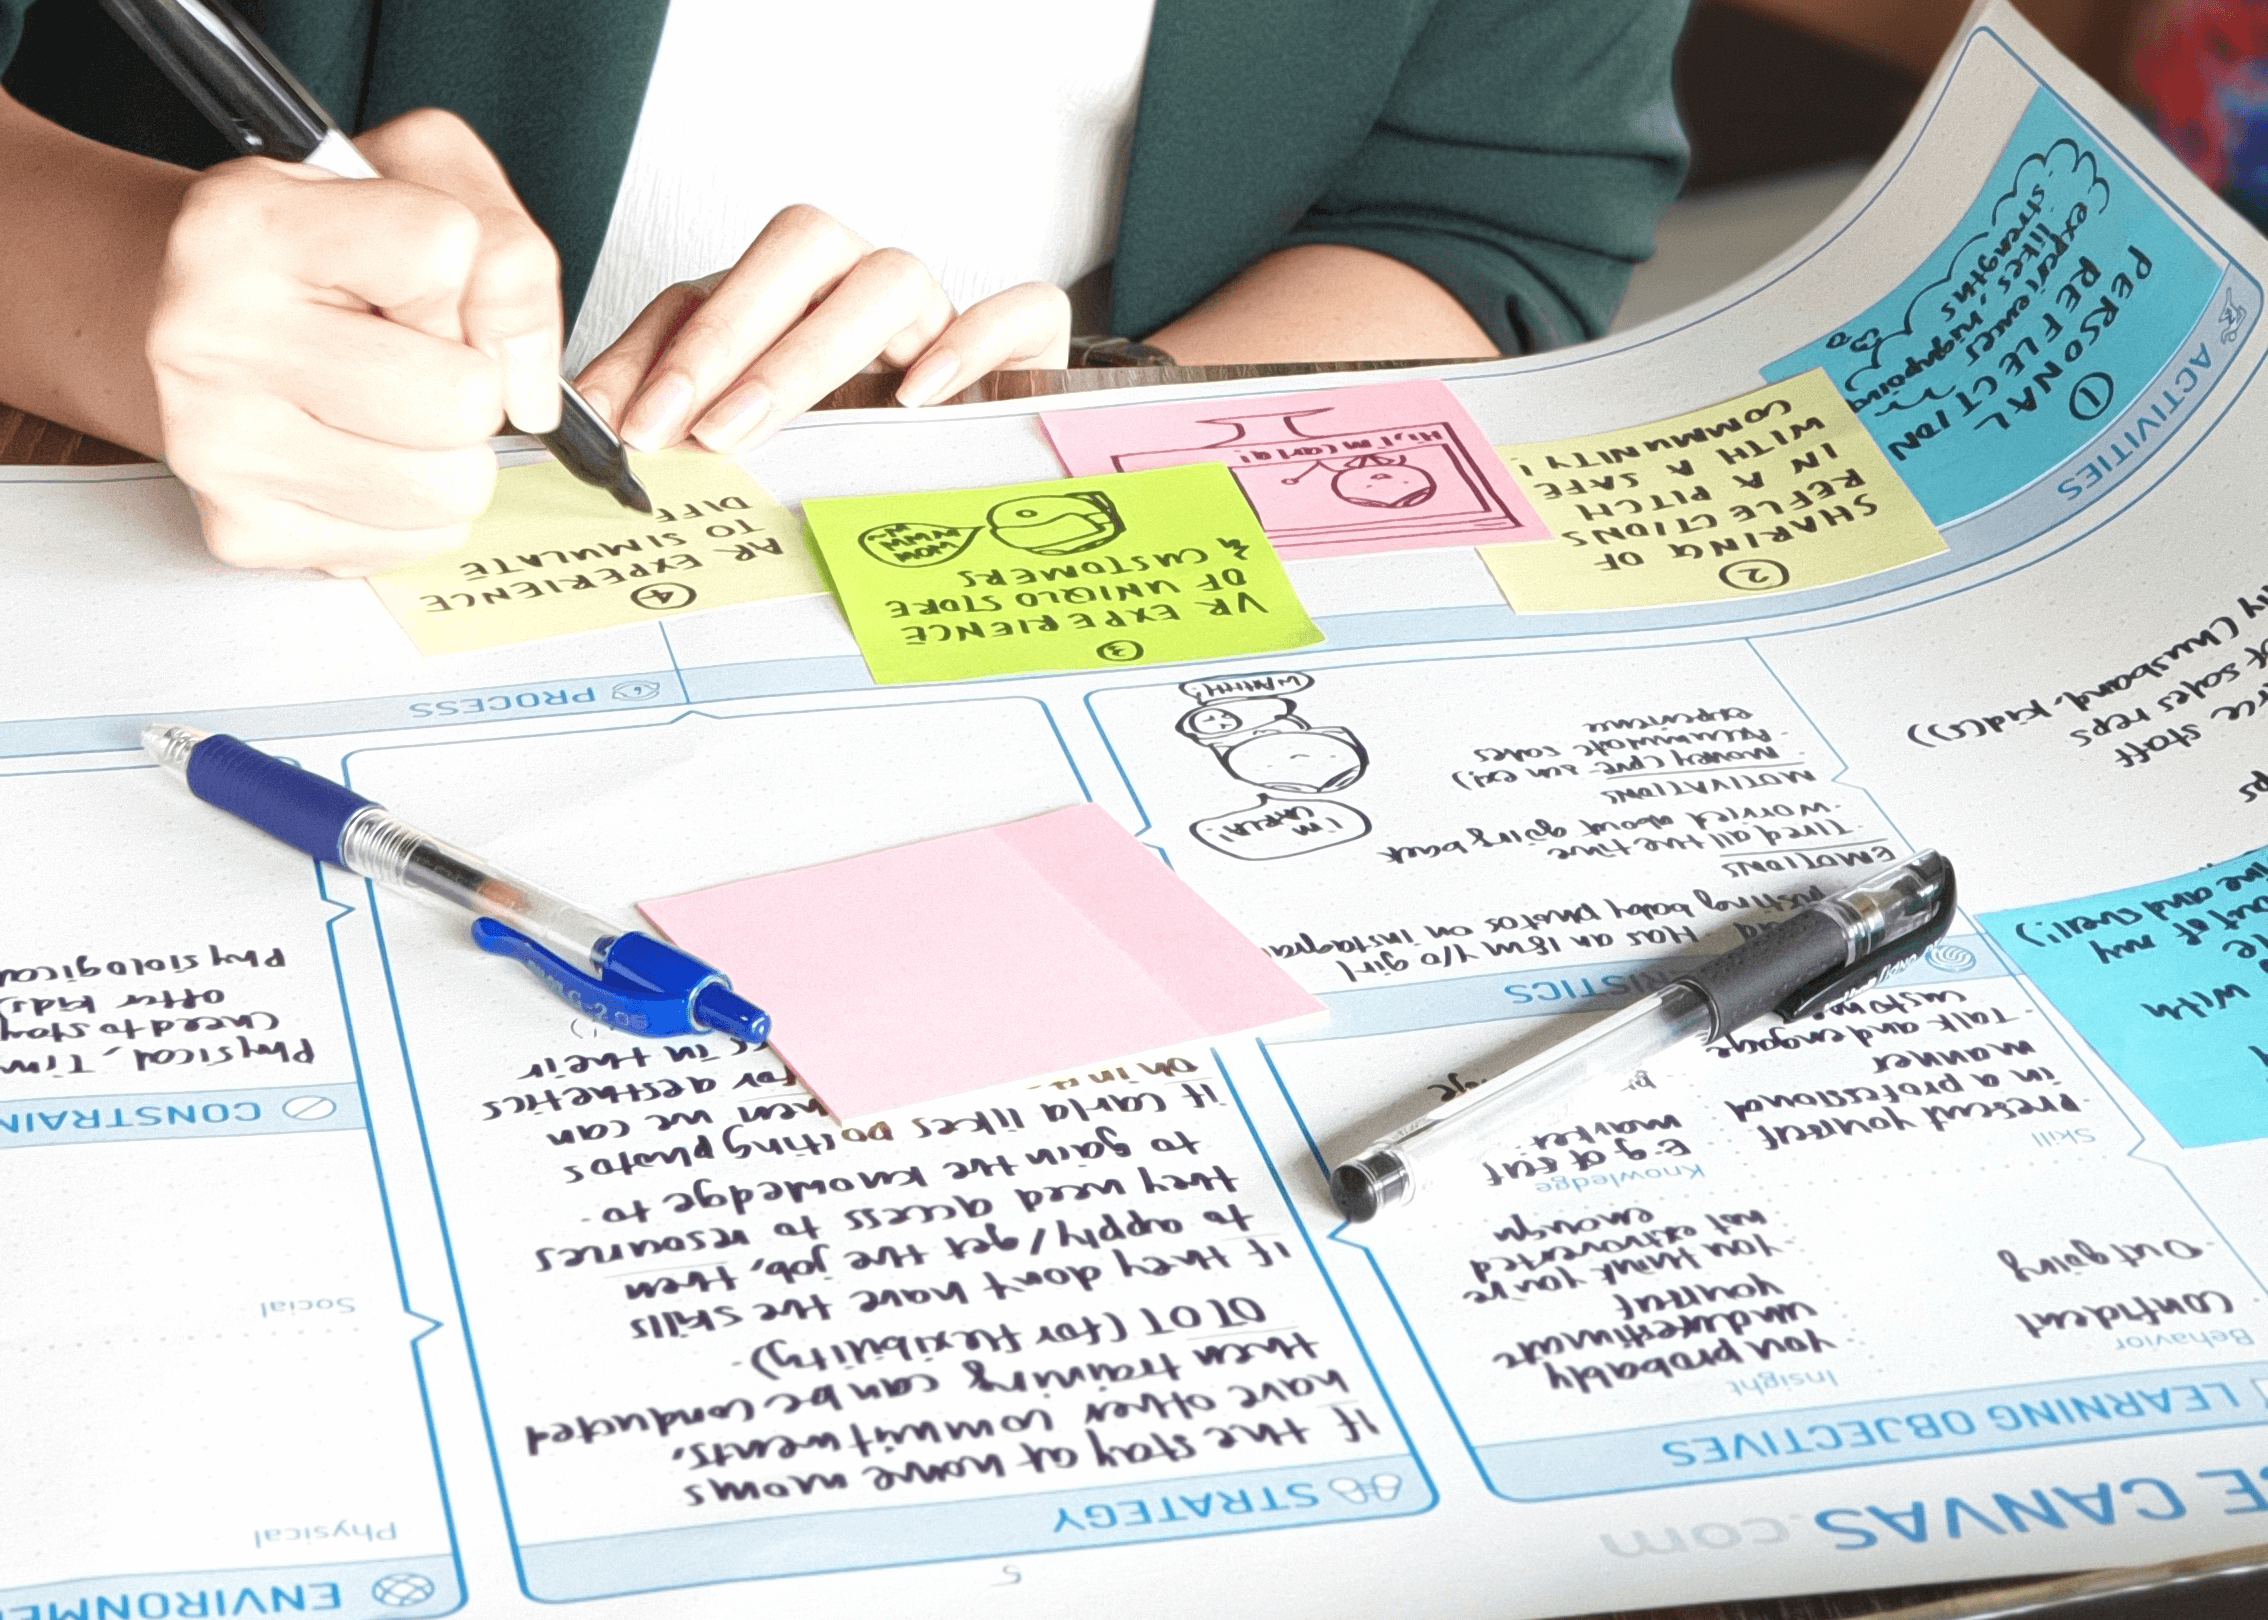 E CANVAS.com
5
LEARNING OBJECTIVES
Behavior
confident
- Outgoing
Insight
- You probably
underestimate
yourself
- You think you're
not extroverted
enough
Skill
- Present yourself
in a professional
manner
- Talk and engage
customers
Knowledge
E.g of self
market
STRATEGY
If the stay at home moms
have other commitments,
then training can be conducted
OTOT (for flexibility).
If they don't have the skills
to apply/get the job, then
they need access to resources
to gain the knowledge to
if carla likes posting photos
we can
for aesthetics
in their
ENVIRONME
Physical
Social
CONSTRAIN
Physical, Tim
(need to stay
after kids)
Physiological
RISTICS
- Has an 18m y/o girl
posting baby photos on instagram
EMOTIONS
- Tired all the time
- worried about going back
MOTIVATIONS
- Money
- Accumulate sales
experience
I'M CARLA!
WAHHH!
staff
of sales reps
my (husband, kid(s))
with
out of my
and shell!)
PROCESS
ACTIVITIES
1
PERSONAL
REFLECTION
(experiences, highpoints
likes,
strengths
2
SHARING OF
REFLECTIONS
IN A PITCH
WITH A SAFE
COMMUNITY!
Hi, I'm Carla!
3
VR EXPERIENCE
OF UNIQLO STORE
& CUSTOMERS
4
AR EXPERIENCE
TO SIMULATE
DIFF